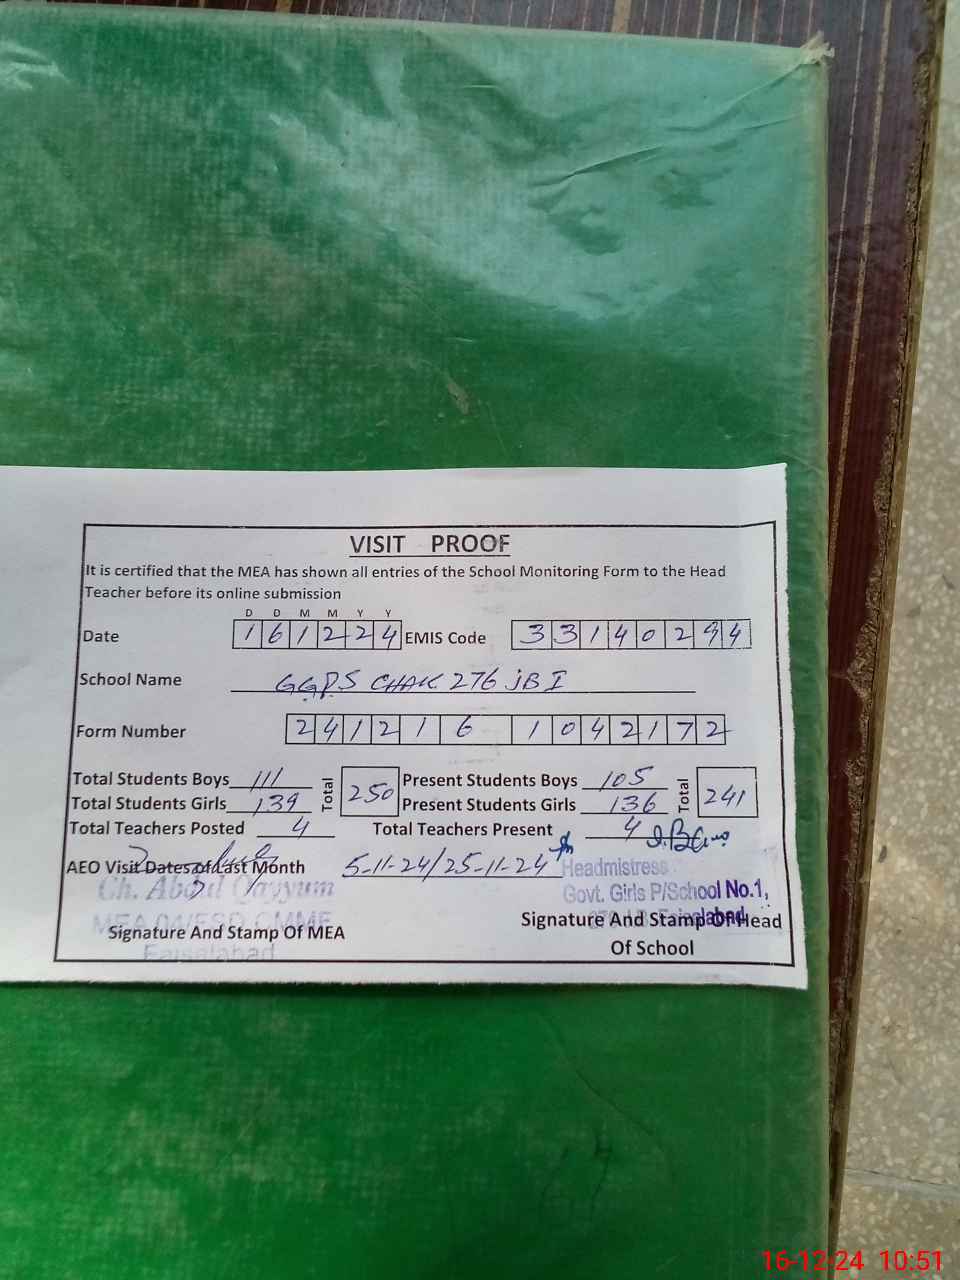 VISIT PROOF
It is certified that the MEA has shown all entries of the School Monitoring Form to the Head
Teacher before its online submission
D D M M Y Y
Date 1 6 1 2 2 4 EMIS Code 3 3 1 4 0 2 9 4
School Name GGPS CHAK 276 JB I
Form Number 2 4 1 2 1 6 1 0 4 2 1 7 2
Total Students Boys 111 Total 250 Present Students Boys 105 Total 241
Total Students Girls 139 Present Students Girls 136
Total Teachers Posted 4 Total Teachers Present 4
AEO Visit Dates of Last Month 5-11-24/25-11-24 Headmistress
Ch. Abdul Qayyum Govt. Girls P/School No.1,
MEA Faisalabad
Signature And Stamp Of MEA Signature And Stamp Of Head
Faisalabad Of School
16-12-24 10:51